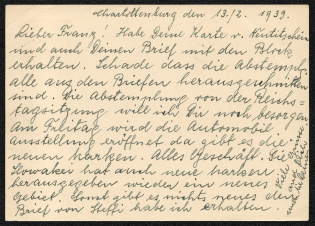 Charlottenburg den 13/2. 1939.
Lieber Franz! Habe Deine Karte v.
und auch Deinen Brief mit den Block
erhalten. Schade dass die Abstempeln
alle aus den Briefen herausgeschnitten
sind. Die Abstemplung von der Reichs-
tagsitzung will ich Dir noch besorgen
Am Freitag wird die Automobil.
Ausstellung eröffnet da gibt es die
neuen Marken. Alles Geschäft. Die
Slowakei hat auch neue Marken
herausgegeben wieder ein neues
Gebiet. Sonst gibt es nichts neues den
Brief von Steffi habe ich erhalten.
Viele